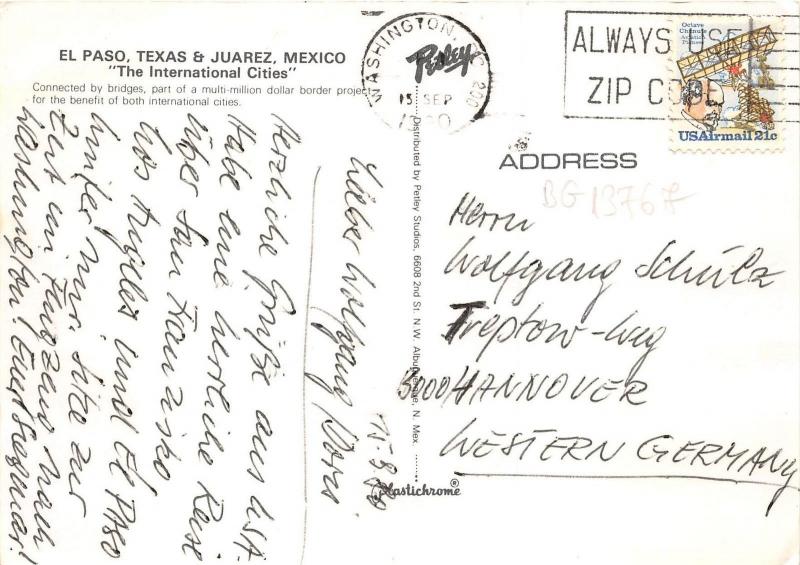 EL PASO, TEXAS & JUAREZ, MEXICO
"The International Cities"
Connected by bridges, part of a multi-million dollar border project
for the benefit of both international cities.
WASHINGTON, DC 200
15 SEP
Petley
ALWAYS USE
ZIP CODE
Octave
Chanute
Aviation
Pioneer
USAirmail 21c
15-9-80
Lieber Wolfgang, Doris
Herzliche Grüße aus USA.
Habe eine herrliche Reise
über San Franzisko
Los Angeles und El Paso
hinter mir. Sitze zur
Zeit im Flugzeug nach
Washington! Euer
Distributed by Petley Studios, 6608 2nd St. N.W. Albuquerque, N. Mex.
Plastichrome®
ADDRESS
BG 13767
Herrn
Wolfgang Schulz
Treptow-Weg
3000 HANNOVER
WESTERN GERMANY